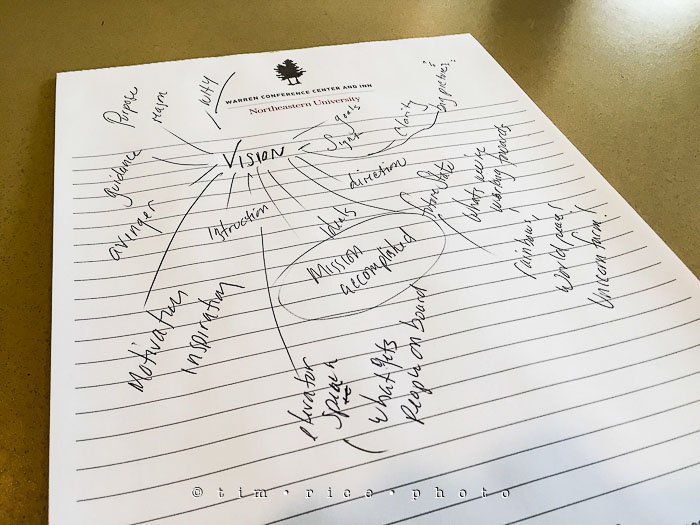 WARREN CONFERENCE CENTER AND INN
Northeastern University
WHY
reason
Purpose
guidance
avenger
VISION
goals
Sight
Clarity
"big picture"
direction
future state
whats we're
working towards
rainbows!
World peace!
Unicorn farm!
Mission
accomplished
Motivation
inspiration
elevator
Speach
what gets
People on board
© tim • rice • photo